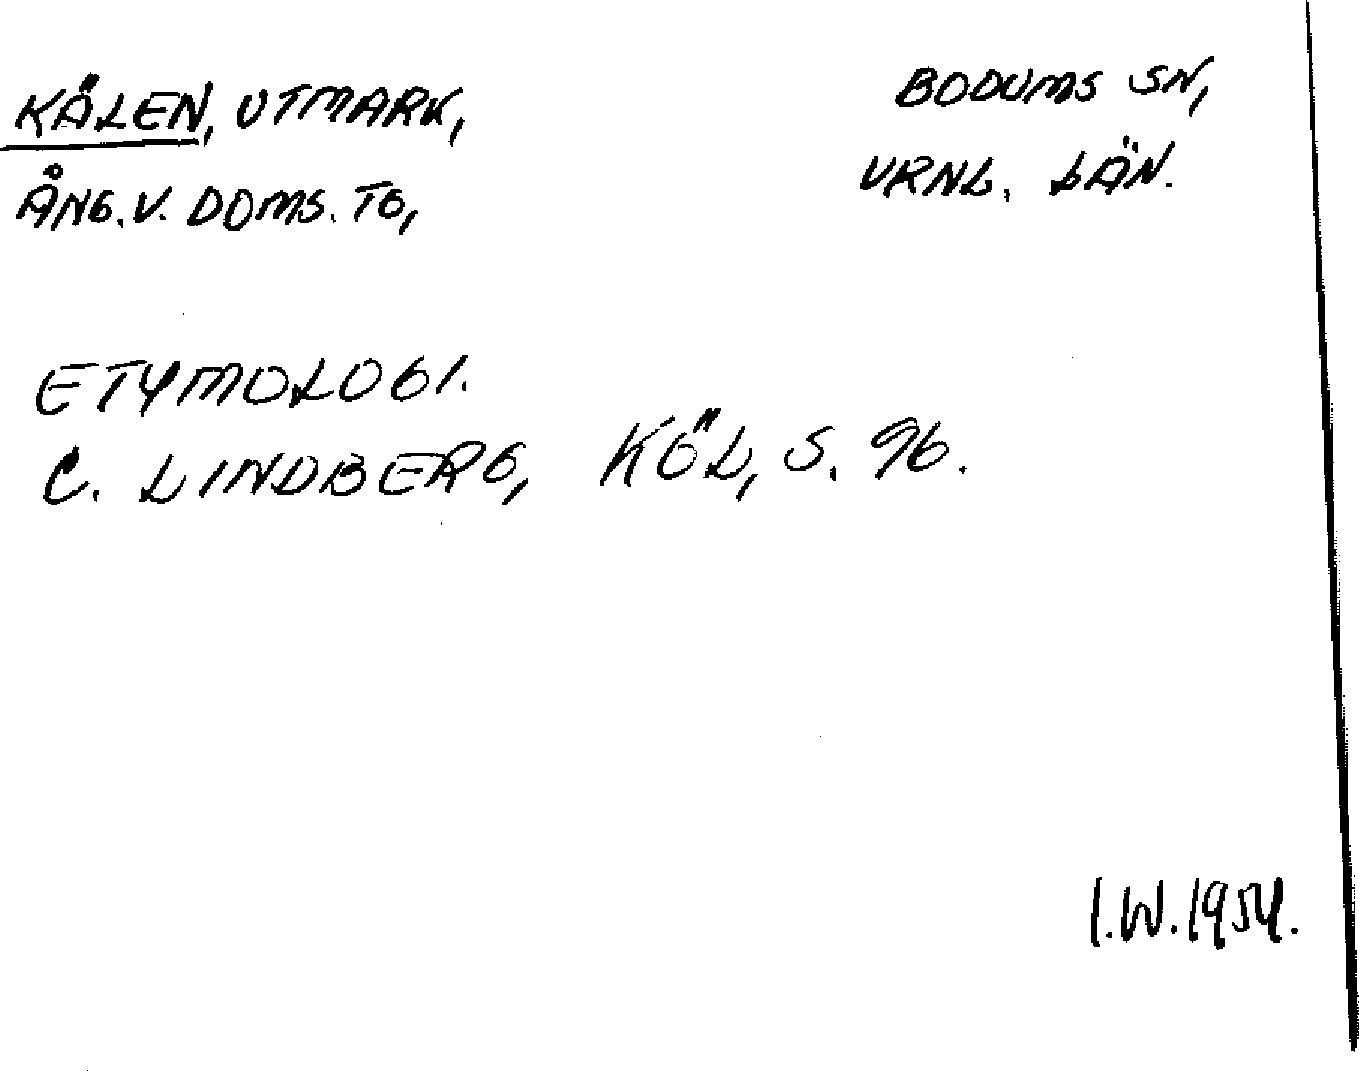 KÄLEN, UTMARK,
ÅNG. V. DOMS. TG,
BODUMS SN,
VRNL. LÄN.
ETYMOLOGI.
C. LINDBERG, KÖL, S. 96.
I.W. 1954.